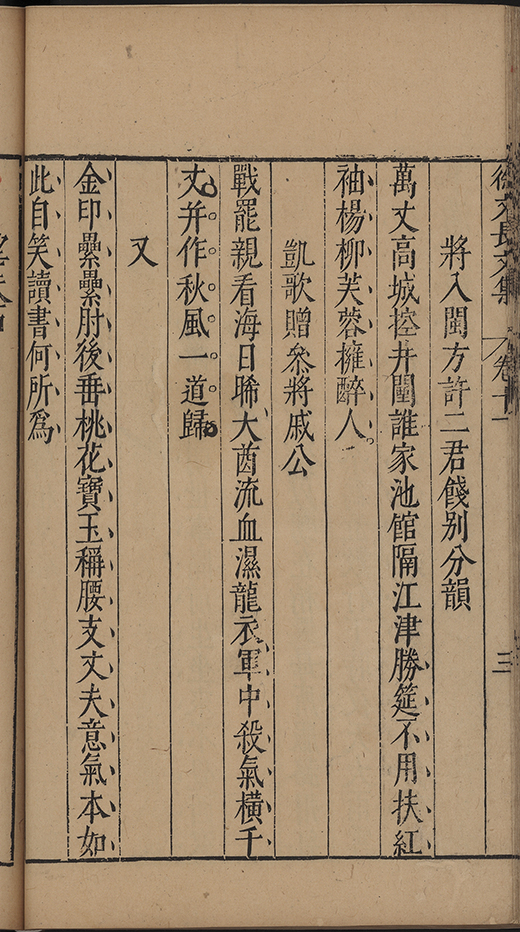 徐文長文集 卷十一 三
將入閩方許二君餞别分韻
萬丈高城控井闉誰家池館隔江津勝筵不用扶紅
袖楊柳芙蓉擁醉人
凱歌贈叅將戚公
戰罷親看海日晞大酋流血濕龍衣軍中殺氣橫千
丈并作秋風一道歸
又
金印纍纍肘後垂桃花寶玉稱腰支丈夫意氣本如
此自笑讀書何所爲